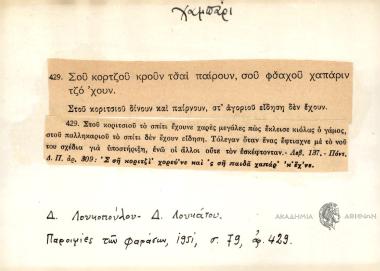 χαμπάρι
429. Σοῦ κορτζοῦ κροῦν τσ̌αὶ παίρουν, σοῦ φσ̌αχοῦ χαπάριν
τζ̌ὸ ’χουν.
Στοῦ κοριτσιοῦ δίνουν καὶ παίρνουν, στ’ ἀγοριοῦ εἴδηση δὲν ἔχουν.
429. Στοῦ κοριτσιοῦ τὸ σπίτι ἔχουνε χαρὲς μεγάλες πὼς ἔκλεισε κιόλας ὁ γάμος,
στοῦ παλληκαριοῦ τὸ σπίτι δὲν ἔχουν εἴδηση. Τόλεγαν ὅταν ἕνας ἔφτιαχνε μὲ τὸ νοῦ
του σχέδια γιὰ ὑποστήριξη, ἐνῶ οἱ ἄλλοι οὔτε τὸν ἐσκέφτονταν.- Λεβ. 137.- Πόντ.
Δ. Π. ἀρ. 309: Σ σῆ κοριτζὶ’ χορεύ’νε καὶ ’ς σῆ παιδᾶ χαπὰρ’ ’κ’ ἔχ’νε.
Δ. Λουκοπούλου - Δ. Λουκάτου.
Παροιμίες τῶν Φαράσων, 1951, σ. 79, ἀρ. 429.
ΑΚΑΔΗΜΙΑ ΑΘΗΝΩΝ